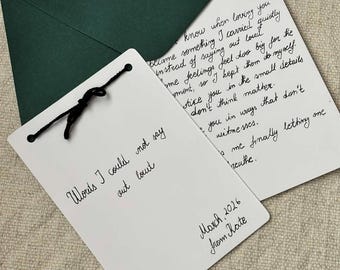 Words I could not say
out loud
March, 2026
from Kate
know when loving you
became something I carried quietly
instead of saying out loud.
me feelings feel too big for the
so I kept them to myself.
notice you in the small details
don't think matter.
you in ways that don't
witnesses.
me finally letting me